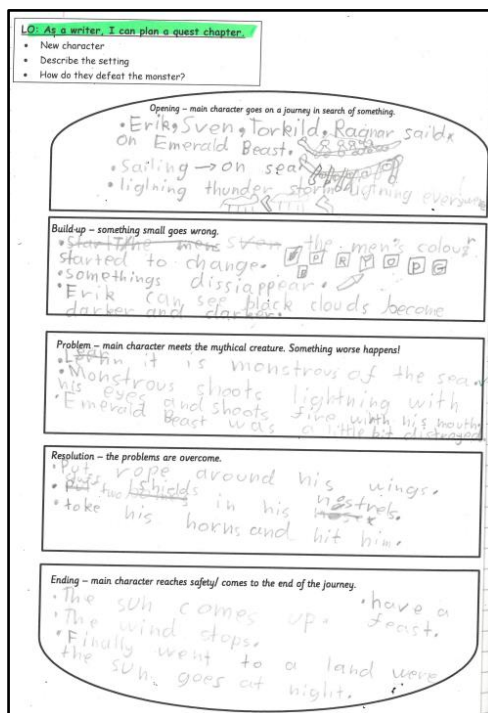 LO: As a writer, I can plan a quest chapter.
• New character
• Describe the setting
• How do they defeat the monster?
Opening – main character goes on a journey in search of something.
• Erik, Sven, Torkild, Ragnar saild
on Emerald Beast.
• Sailing → on sea
• ligtning thunder storm ligtning everywere
Build-up – something small goes wrong.
• the men's colour
started to change. B P R Y O P G
• somethings dissiappear.
• Erik can see black clouds become
darker and darker.
Problem – main character meets the mythical creature. Something worse happens!
• it is monstrous of the sea.
• Monstrous shoots lightning with
his eyes and shoots fire with his mouth
• Emerald Beast was a little bit distroyed
Resolution – the problems are overcome.
• Put rope around his wings.
• Put two shields in his nostrels.
• take his horns and hit him.
Ending – main character reaches safety/ comes to the end of the journey.
• The sun comes up. • have a
• The wind stops. feast.
• Finally went to a land were
the sun goes at night.